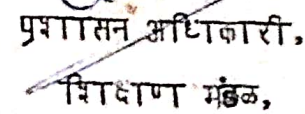 प्रशासन अधिकारी,
शिक्षण मंडळ,